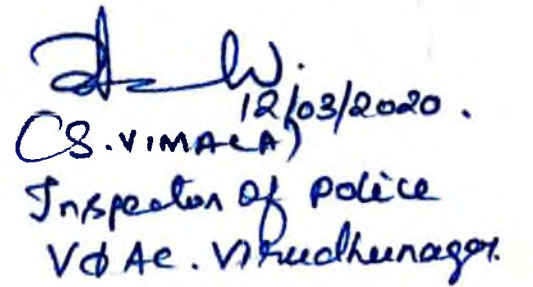 12/03/2020.
(S. VIMALA)
Inspector of police
V&AC. Virudhunagar.